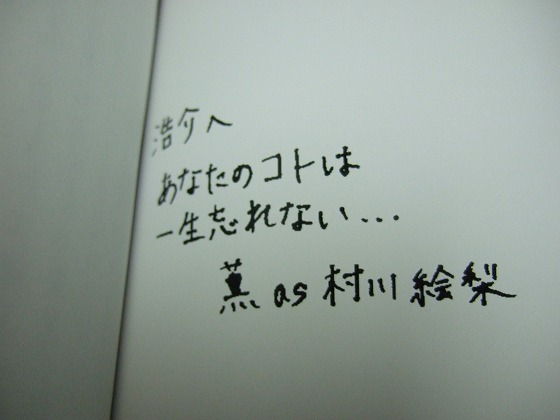 浩介へ
あなたのコトは
一生忘れない...
薫 as 村川絵梨